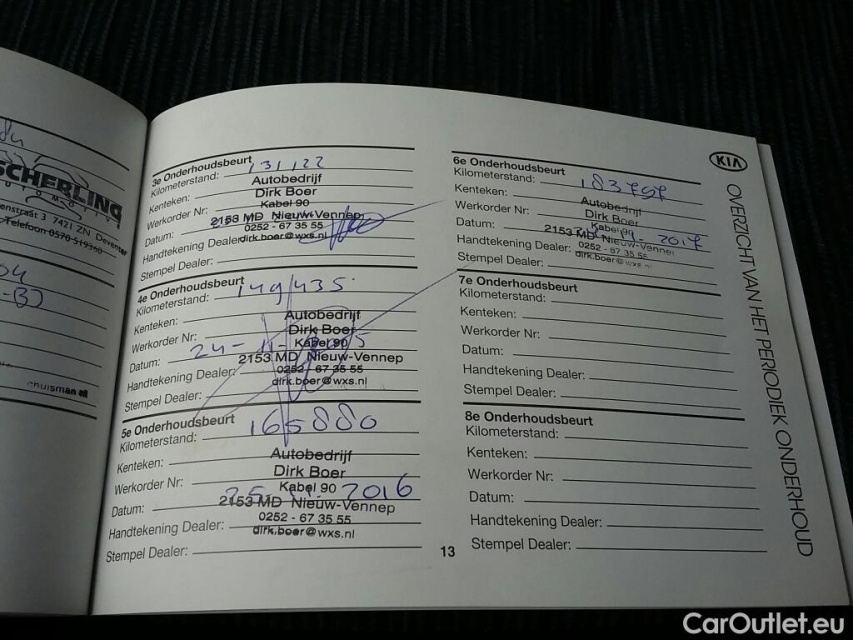 SCHERLING
AUTOMOTIVE
7421 ZN Deventer
Telefoon 0570 519360
3e Onderhoudsbeurt
Kilometerstand: 131122
Kenteken:
Werkorder Nr:
Datum:
Handtekening Dealer:
Stempel Dealer:
Autobedrijf
Dirk Boer
Kabel 90
2153 MD Nieuw-Vennep
0252 - 67 35 55
dirk.boer@wxs.nl
4e Onderhoudsbeurt
Kilometerstand: 149435
Kenteken:
Werkorder Nr:
Datum: 24-11-2015
Handtekening Dealer:
Stempel Dealer:
Autobedrijf
Dirk Boer
Kabel 90
2153 MD Nieuw-Vennep
0252 - 67 35 55
dirk.boer@wxs.nl
5e Onderhoudsbeurt
Kilometerstand: 165880
Kenteken:
Werkorder Nr:
Datum: 2016
Handtekening Dealer:
Stempel Dealer:
Autobedrijf
Dirk Boer
Kabel 90
2153 MD Nieuw-Vennep
0252 - 67 35 55
dirk.boer@wxs.nl
6e Onderhoudsbeurt
Kilometerstand: 183797
Kenteken:
Werkorder Nr:
Datum: 2017
Handtekening Dealer:
Stempel Dealer:
Autobedrijf
Dirk Boer
Kabel 90
2153 MD Nieuw-Vennep
0252 - 67 35 55
dirk.boer@wxs.nl
7e Onderhoudsbeurt
Kilometerstand:
Kenteken:
Werkorder Nr:
Datum:
Handtekening Dealer:
Stempel Dealer:
8e Onderhoudsbeurt
Kilometerstand:
Kenteken:
Werkorder Nr:
Datum:
Handtekening Dealer:
Stempel Dealer:
13
KIA
OVERZICHT VAN HET PERIODIEK ONDERHOUD
CarOutlet.eu